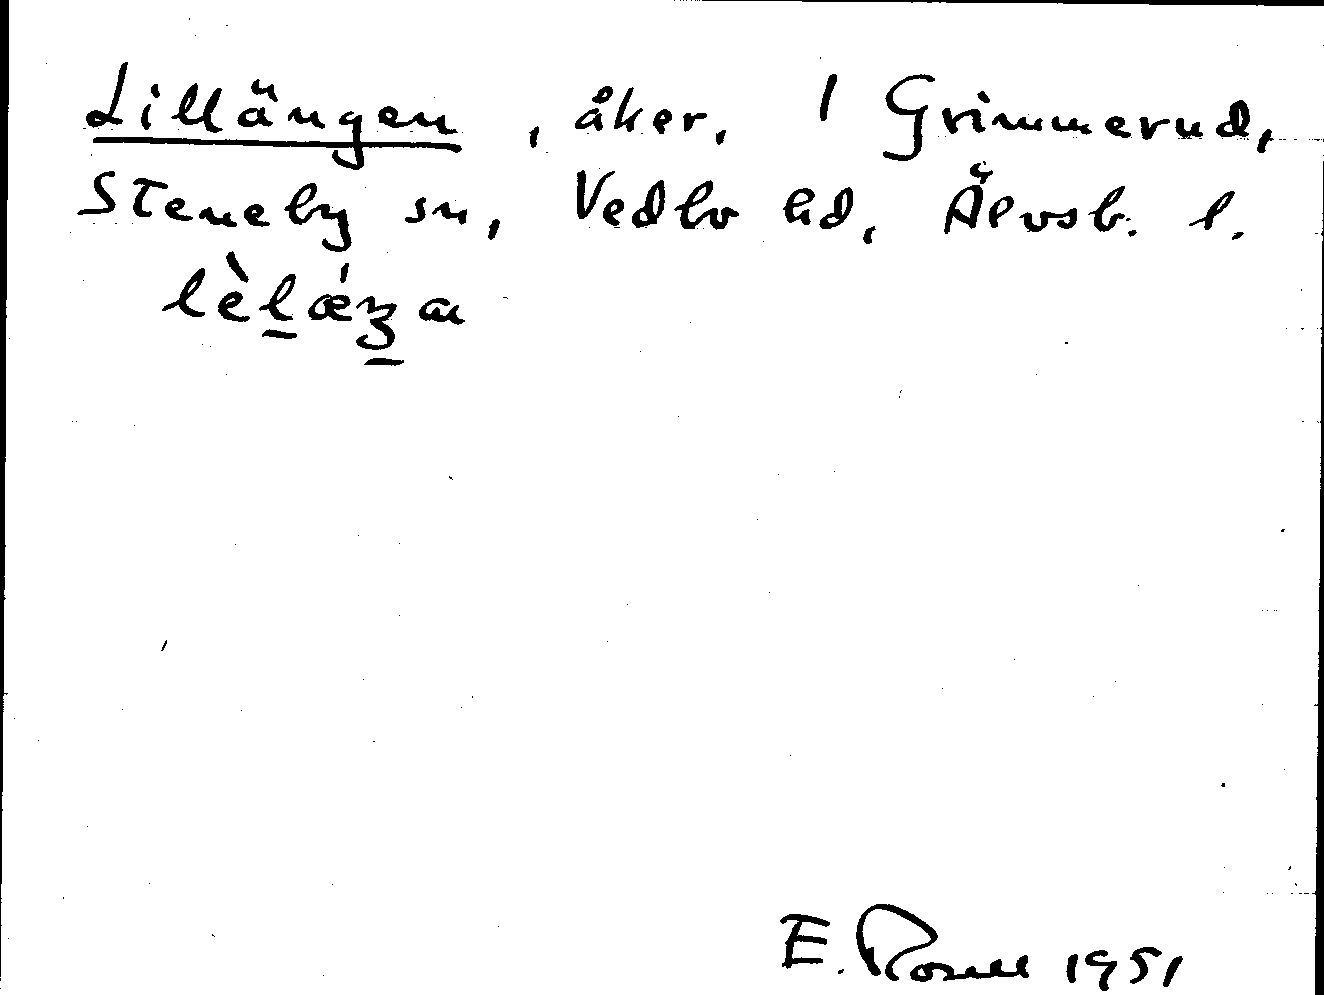 Lillängen, åker, 1 Grimmerud,
Steneby sn, Vedbo hd, Älvsb. l.
E. Rosell 1951